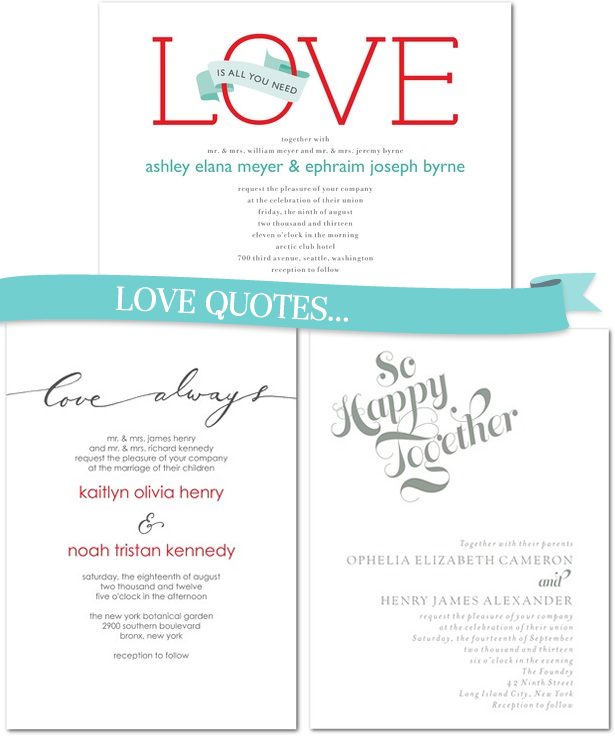 LOVE
IS ALL YOU NEED
together with
mr. & mrs. william meyer and mr. & mrs. jeremy byrne
ashley elana meyer & ephraim joseph byrne
request the pleasure of your company
at the celebration of their union
friday, the ninth of august
two thousand and thirteen
eleven o'clock in the morning
arctic club hotel
700 third avenue, seattle, washington
reception to follow
LOVE QUOTES...
love always
mr. & mrs. james henry
and mr. & mrs. richard kennedy
request the pleasure of your company
at the marriage of their children
kaitlyn olivia henry
&
noah tristan kennedy
saturday, the eighteenth of august
two thousand and twelve
five o'clock in the afternoon
the new york botanical garden
2900 southern boulevard
bronx, new york
reception to follow
So
Happy
Together
Together with their parents
OPHELIA ELIZABETH CAMERON
and
HENRY JAMES ALEXANDER
request the pleasure of your company
at the celebration of their union
Saturday, the fourteenth of September
two thousand and thirteen
six o'clock in the evening
The Foundry
42 Ninth Street
Long Island City, New York
Reception to follow